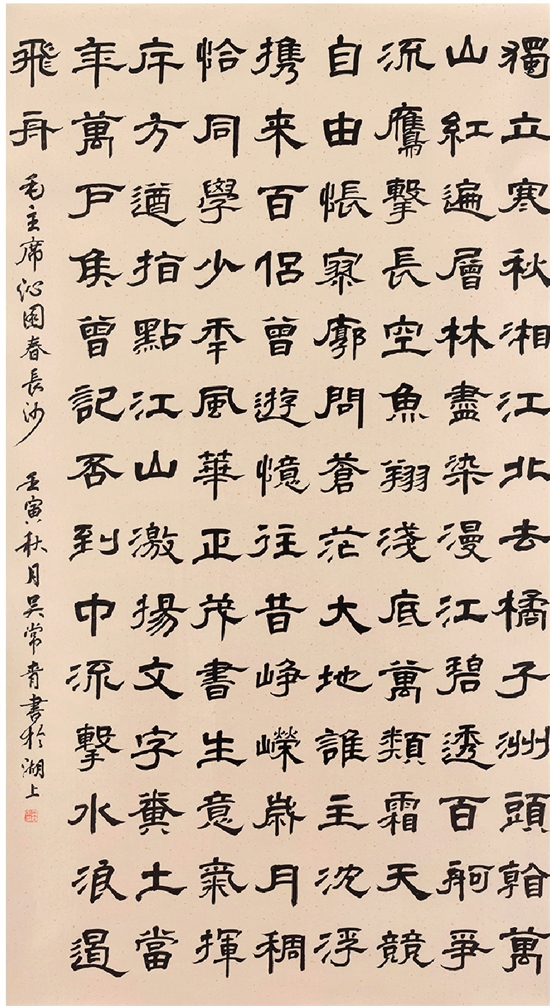 獨立寒秋湘江北去橘子洲頭看萬
山紅遍層林盡染漫江碧透百舸爭
流鷹擊長空魚翔淺底萬類霜天競
自由悵寥廓問蒼茫大地誰主沈浮
携来百侣曾遊憶往昔崢嶸歲月稠
恰同學少年風華正茂書生意氣揮
斥方遒指點江山激揚文字糞土當
年萬户侯曾記否到中流擊水浪遏
飛舟
毛主席沁園春長沙 壬寅秋月吴常青書於湖上